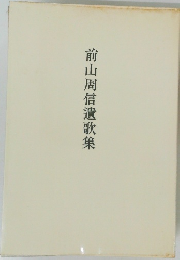 前山周信遺歌集